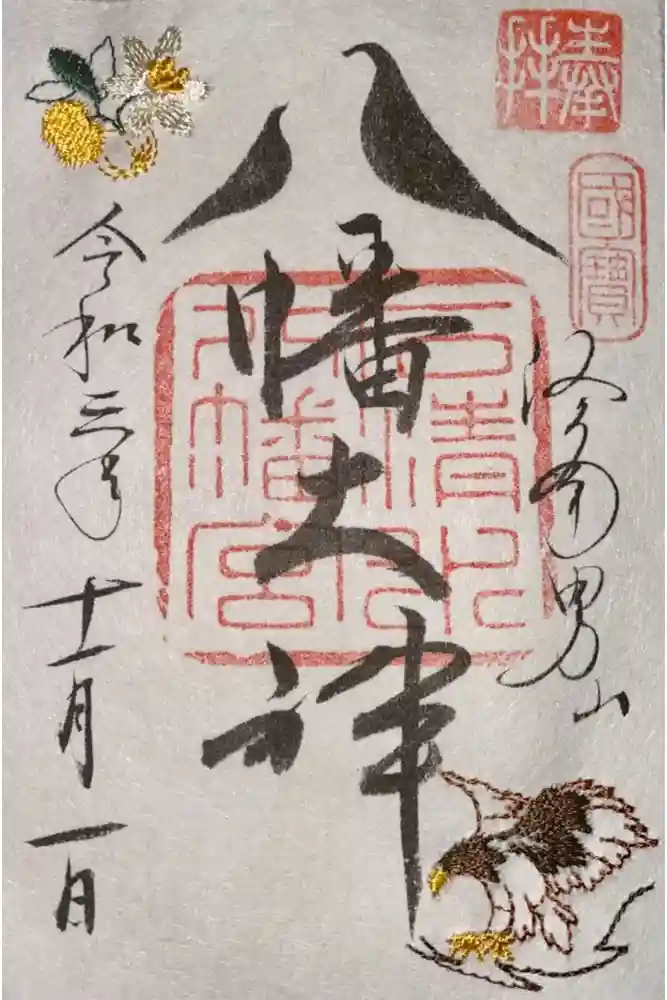 奉拝
國寳
洛南男山
石清水
八幡宮
八幡大神
令和三年十一月一日